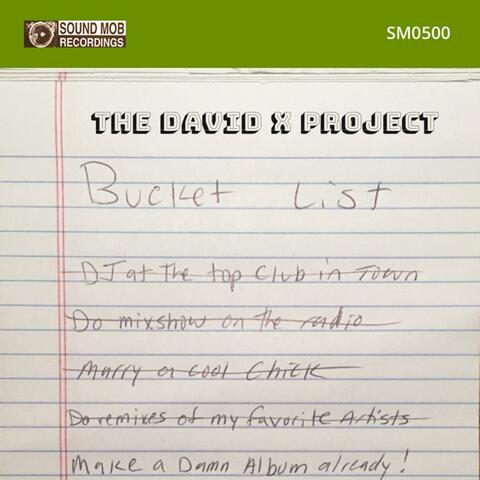 SOUND MOB
RECORDINGS
SM0500
THE DAVID X PROJECT
Bucket List
DJ at the top Club in Town
Do mixshow on the radio
Marry a cool Chick
Do remixes of my favorite Artists
Make a Damn Album already!